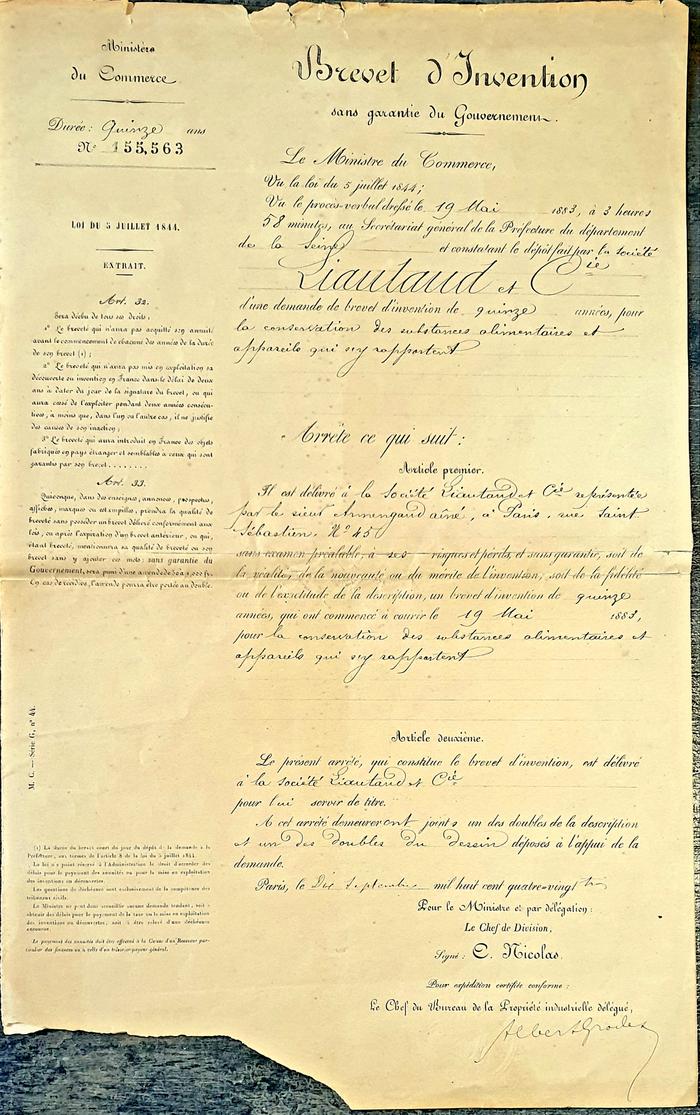 Ministère
du Commerce
Durée : quinze ans
N° 155,563
LOI DU 5 JUILLET 1844.
EXTRAIT.
Art. 32.
Sera déchu de tous ses droits :
1° Le breveté qui n'aura pas acquitté son annuité
avant le commencement de chacune des années de la durée
de son brevet (1) ;
2° Le breveté qui n'aura pas mis en exploitation sa
découverte ou invention en France dans le délai de deux
ans à dater du jour de la signature du brevet, ou qui
aura cessé de l'exploiter pendant deux années consécu-
tives, à moins que, dans l'un ou l'autre cas, il ne justifie
des causes de son inaction ;
3° Le breveté qui aura introduit en France des objets
fabriqués en pays étranger et semblables à ceux qui sont
garantis par son brevet........
Art. 33.
Quiconque, dans des enseignes, annonces, prospectus,
affiches, marques ou estampilles, prendra la qualité de
breveté sans posséder un brevet délivré conformément aux
lois, ou après l'expiration d'un brevet antérieur, ou qui,
étant breveté, mentionnera sa qualité de breveté ou son
brevet sans y ajouter ces mots sans garantie du
Gouvernement, sera puni d'une amende de 50 à 1,000 fr.
En cas de récidive, l'amende pourra être portée au double.
M. C. — Série G, n° 44.
(1) La durée du brevet court du jour du dépôt de la demande à la
Préfecture, aux termes de l'article 8 de la loi du 5 juillet 1844.
La loi n'a point réservé à l'Administration le droit d'accorder des
délais pour le payement des annuités ou pour la mise en exploitation
des inventions ou découvertes.
Les questions de déchéance sont exclusivement de la compétence des
tribunaux civils.
Le Ministre ne peut donc accueillir aucune demande tendant, soit à
obtenir des délais pour le payement de la taxe ou la mise en exploitation
des inventions ou découvertes, soit à être relevé d'une déchéance
encourue.
Le payement des annuités doit être effectué à la Caisse d'un Receveur par-
ticulier des finances ou à celle d'un trésorier-payeur général.
Brevet d'Invention
sans garantie du Gouvernement.
Le Ministre du Commerce,
Vu la loi du 5 juillet 1844 ;
Vu le procès-verbal dressé le 19 Mai 1883, à 3 heures
58 minutes, au Secrétariat général de la Préfecture du département
de la Seine et constatant le dépôt fait par la société
Liautaud et Cie
d'une demande de brevet d'invention de quinze années, pour
la conservation des substances alimentaires et
appareils qui s'y rapportent
Arrête ce qui suit :
Article premier.
Il est délivré à la Société Liautaud et Cie représentée
par le sieur Armengaud aîné, à Paris, rue Saint
Sébastien, N° 45
sans examen préalable, à ses risques et périls, et sans garantie, soit de
la réalité, de la nouveauté ou du mérite de l'invention, soit de la fidélité
ou de l'exactitude de la description, un brevet d'invention de quinze
années, qui ont commencé à courir le 19 Mai 1883,
pour la conservation des substances alimentaires et
appareils qui s'y rapportent
Article deuxième.
Le présent arrêté, qui constitue le brevet d'invention, est délivré
à la société Liautaud et Cie
pour lui servir de titre.
A cet arrêté demeureront joints un des doubles de la description
et un des doubles du dessin déposés à l'appui de la
demande.
Paris, le Dix Septembre mil huit cent quatre-vingt trois
Pour le Ministre et par délégation :
Le Chef de Division,
Signé : C. Nicolas.
Pour expédition certifiée conforme :
Le Chef du Bureau de la Propriété industrielle délégué,